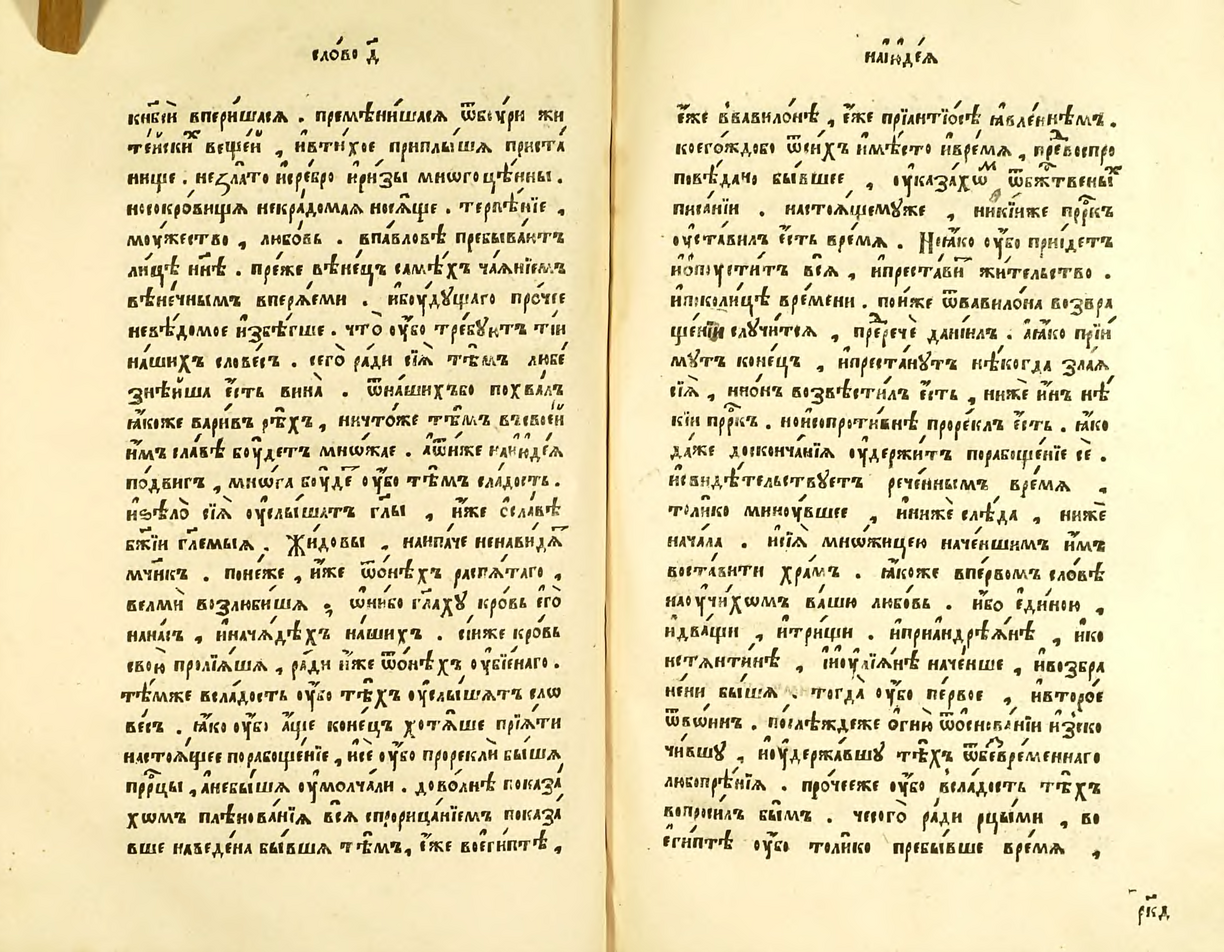 сло́во д҃
кнѣ́й впери́шасѧ . премѣни́шасѧ ѿбѹ́ри жи
те́йскиⷯ веще́й , ивти́хое приплы́шѧ приста́
нище . незла́то исребро̀ и҆ри́зы мнѡгоцѣ́нны .
носокро́вищѧ некра́домаѧ носѧ́ще . терпѣ́нїе ,
мꙋ́жество , любо́вь . впа́вловѣ пребыва́ютъ
ли́цѣ нн҃ѣ . пре́же вѣне́цъ самѣ́хъ ча́ѧнїемъ
вѣне́чнымъ вперѧ́еми . ибꙋ́дꙋщаго про́чее
невѣ́домое и҆збѣ́гше . что̀ ᲂу҆́бо тре́бꙋютъ ті́и
на́шихъ слове́съ . сего̀ ра́ди сїѧ̀ тѣ̑мъ любе́
знѣ́йша є҆́сть вина̀ . ѿна́шихъбо похва́лъ
ꙗ҆́коже вари́въ рѣ́хъ , ничто́же тѣ̑мъ въсвое́й
и҆̀мъ сла́вѣ бꙋ́детъ мно́жае . а҆ѿни́же наїюде́ѧ
по́двигъ , мнѡ́га бꙋ́деⷮ ᲂу҆́бо тѣ̑мъ сла́дость .
иѕѣло̀ сїѧ̀ ᲂу҆слы́шатъ гл҃ы , и҆́же ѡ҆сла́вѣ
бж҃їи гл҃емыѧ . Жи́довы , наипа́че ненави́дѧⷮ
мч҃нкъ . поне́же , и҆́же ѿѻ҆нѣ́хъ распѧ́таго ,
велмѝ возлюби́шѧ , ѻ҆ни́бо гл҃ахꙋ кро́вь є҆го̀
на́насъ , инача́дѣхъ на́шихъ . сі́иже кро́вь
свою̀ пролїѧ́шѧ , ра́ди и҆́же ѿѻ҆нѣ́хъ ᲂу҆бїе́наго .
тѣ́мже всла́дость ᲂу҆́бо тѣ́хъ ᲂу҆слы́шѧтъ сло
ве́съ . ꙗ҆́ко ᲂу҆́бо а҆́ще коне́цъ хотѧ́ше прїѧ́ти
настоѧ́щее порабоще́нїе , исѐ ᲂу҆́бо прореклѝ бы́шѧ
прⷪ҇рцы , анебы́шѧ ᲂу҆молча́ли . дово́лнѣ показа́
хомъ плѣнова́нїѧ всѧ̀ спрорица́нїемъ показа́
вше наведе́на бы́вшѧ тѣ̑мъ , є҆́же воегі́птѣ ,
наїюде́ѧ
є҆́же ввавило́нѣ , є҆́же прїантїо́сѣ ꙗ҆вле́ннѣмъ .
коего́ждобо ѿси́хъ имѣ́сто ивре́мѧ , пре́воспро
повѣ́дано бы́вшее , ᲂу҆каза́хѡⷨ ѿбж҃твены́ⷯ
писа́нїи . настоѧ́щемꙋже , никі́иже прⷪ҇ркъ
ᲂу҆ста́вилъ є҆́сть вре́мѧ . Ноꙗ҆́ко ᲂу҆́бо прїи́детъ
иѡ҆пꙋстит́ъ всѧ̀ , ипреста́виⷮ жи́тельство .
ипоколи́цѣ вре́мени . по́йже ѿвавило́на возвра
ще́нїи случи́тсѧ , пре́речѐ данїи́лъ . аꙗ҆́ко прїи́
мꙋтъ коне́цъ , ипреста́нꙋтъ нѣ́когда зла́ѧ
сїѧ̀ , нио́нъ возвѣсти́лъ є҆́сть , нижѐ и҆́нъ нѣ́
кїи прⷪ҇ркъ . ноисопроти́внѣ проре́клъ є҆́сть . ꙗ҆́ко
да́же доскончанїѧ ᲂу҆держи́тъ порабоще́нїе сѐ .
исвидѣ́тельствꙋетъ рече́ннымъ вре́мѧ ,
толи́ко минꙋ́вшее , иниже́ слѣ́да , нижѐ
нача́ла . исїѧ̀ мно́жицею наче́ншимъ и҆̀мъ
воста́вити хра́мъ . ꙗ҆́коже впе́рвомъ сло́вѣ
наꙋчи́хомъ ва́шю любо́вь . и҆́бо є҆ди́ною ,
идва́щи , итри́щи . иприандрѣѧ́нѣ , ико
нстѧнти́нѣ , їиꙋлїѧ́нѣ наче́нше , ивозбра
не́ни бы́шѧ . тогда̀ ᲂу҆́бо пе́рвое , ивторо́е
ѿво́инъ . послѣ́ждеже ѻ҆гню̀ ѿѻ҆снова́нїи и҆зско
чи́вшꙋ , иᲂу҆держа́вшꙋ тѣ́хъ ѿбезвре́меннаго
любопрѣ́нїѧ . про́чееже ᲂу҆́бо всла́дость тѣ́хъ
вопроси́лъ бы́мъ . чесого̀ ра́ди рцы́ми , во
егі́птѣ ᲂу҆́бо толи́ко пребы́вше вре́мѧ ,
рк҃д